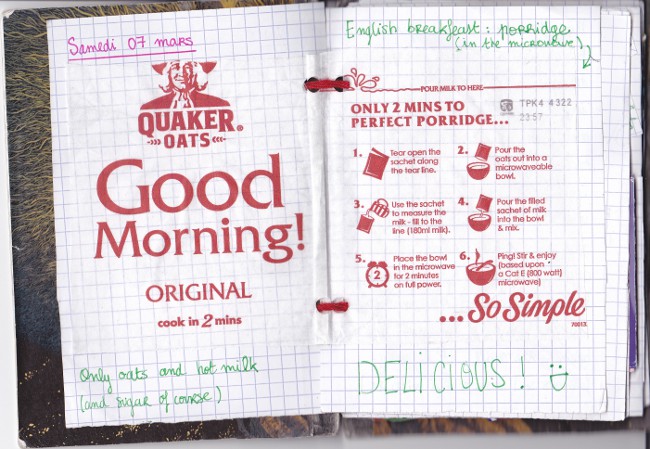 Samedi 07 mars
QUAKER®
OATS
Good
Morning!
ORIGINAL
cook in 2 mins
Only oats and hot milk
(and sugar of course)
English breakfeast : porridge
(in the microwave)
POUR MILK TO HERE
ONLY 2 MINS TO
PERFECT PORRIDGE...
TPK4 4322
23:57
1. Tear open the
sachet along
the tear line.
2. Pour the
oats out into a
microwaveable
bowl.
3. Use the sachet
to measure the
milk - fill to the
line (180ml milk).
4. Pour the filled
sachet of milk
into the bowl
& mix.
5. Place the bowl
in the microwave
for 2 minutes
on full power.
2
6. Ping! Stir & enjoy
(based upon
a Cat E (800 watt)
microwave)
...So Simple
DELICIOUS !